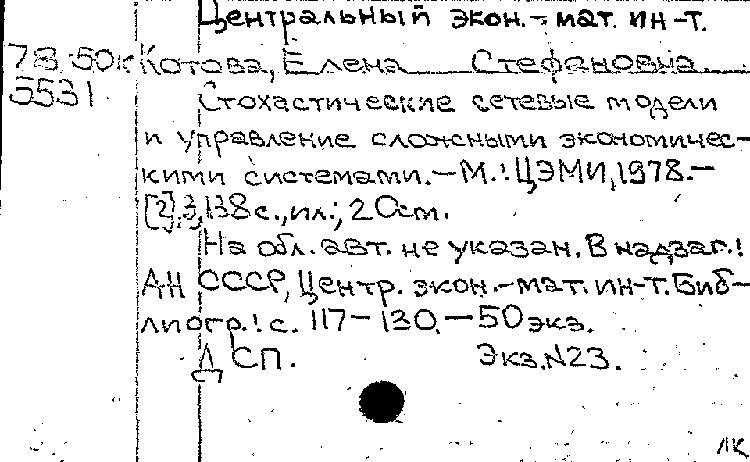 Центральный экон.-мат. ин-т.
78-50к Котова, Елена Стефановна.
5531 Стохастические сетевые модели
и управление сложными экономичес-
кими системами.-М.:ЦЭМИ,1978.-
[2],3,138с.,ил.;20см.
На обл. авт. не указан. В надзаг.:
АН СССР, Центр. экон.-мат. ин-т. Биб-
лиогр.: с. 117-130.-50экз.
ДСП. Экз.N23.
ЛК